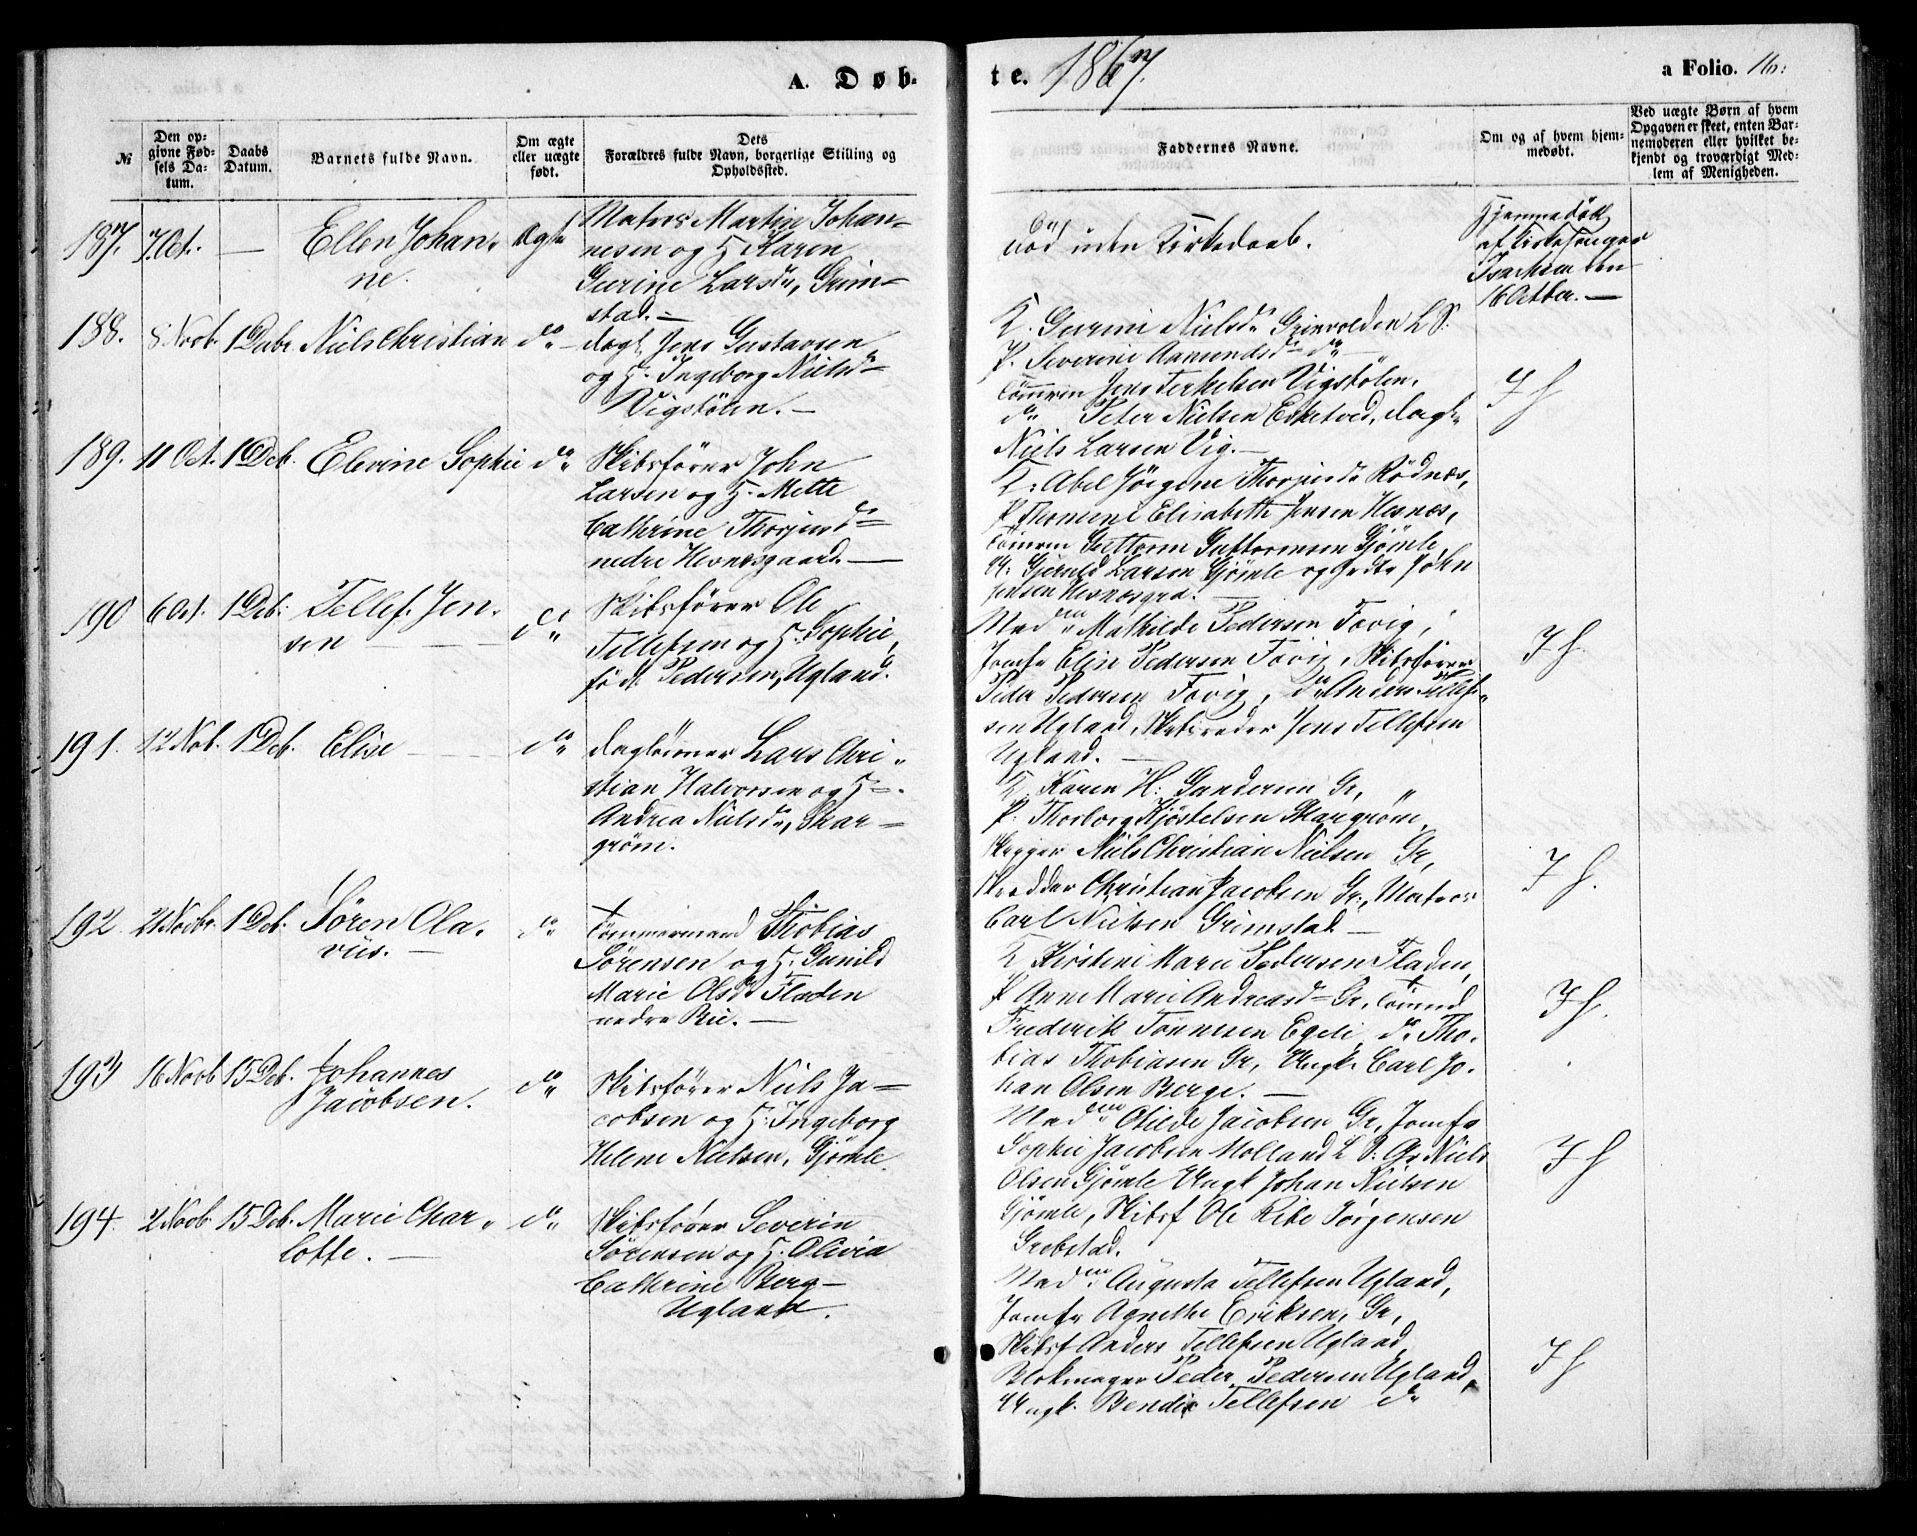 A. Døb-
te. 1867.
a Folio. 16.
№
Den op-
givne Fød-
sels Da-
tum.
Daabs
Datum.
Barnets fulde Navn.
Om ægte
eller uægte
født.
Dets
Forældres fulde Navn, borgerlige Stilling og
Opholdssted.
Faddernes Navne.
Om og af hvem hjem-
medøbt.
Ved uægte Børn af hvem
Opgaven er skeet, enten Bar-
nemoderen eller hvilket be-
kjendt og troværdigt Med-
lem af Menigheden.
187. 7 Oct. — Ellen Johan-
ne.
Ægte
Matros Martin Johan-
nesen og H. Karen
Gurine Larsdr, Grim-
stad. —
Død uden Kirkedaab.
Hjemmedøbt
af Kirkesanger
den
16 Octbr. —
188. 8 Novb. 1 Debr. Niels Christian do
Dagl. Jens Gustavsen
og H. Ingeborg Nielsd
Vigstølen. —
K. Gurine Nielsdr L. S.
P. Severine Aamundsdr do
Tømmerm Jens Terkelsen Vigstølen,
do Peter Nielsen Esketved, Dagl.
Niels Larsen Vig. —
J H
189. 11 Oct. 1 Deb. Elevine Sophie do
Skibsfører John
Larsen og H. Mette
Cathrine Thorjusd
nedre Hevnesgaard. —
K. Abel Jørgine Thorjusdr Rødnes,
P Thomine Elisabeth Jensen Hevnes,
Tømrm Guttorm Guttormsen Gjømle,
Larsen Gjømle og John
Jensen Hevnesgrd. —
190 6 Oct. 1 Deb. Tellef Jen-
sen
do
Skibsfører Ole
Tellefsen og H. Sophie,
født Pedersen, Ugland.
Madm Mathilde Pedersen Fevig,
Jomfr Elin Pedersen Fevig, Skibsfører
Peder Pedersen Fevig, do Anders Tellef-
sen Ugland, Skibsreder Jens Tellefsen
Ugland. —
J H.
191. 12 Nob. 1 Deb. Elise — do
Dagleiner Lars Chri-
stian Halvorsen og H.
Andrea Nielsdr, Skar-
grøm.
K. Karen H. Gundersen Gr,
P. Thorborg Kjøstelsen Skargrøm,
Skipper Niels Christian Nielsen Gr,
Skrædder Christian Jacobsen Gr, Matros
Carl Nielsen Grimstad —
J H.
192 21 Novbr. 1 Deb. Søren Ola-
vus. —
do
Tømmermand Thobias
Sørensen og H. Gunild
Marie Olsdr Fladen
nedre Rie. —
K Kirstine Marie Pedersen Fladen,
P Anne Marie Andreasdr Gr, Tømmd
Frederik Tønnesen Egeli, do Tho-
bias Thobiasen Gr, Ungk. Carl Jo-
han Olsen Berge. —
J H.
193 16 Novb 15 Deb. Johannes
Jacobsen.
do
Skibsfører Niels Ja-
cobsen og H. Ingeborg
Helene Nielsen, Gjømle.
Madm Otilde Jacobsen Gr, Jomfr
Sophie Jacobsen Molland L. S. Gr Niels
Olsen Gjømle Ungk Johan Nielsen
Gjømle, Skibsf Ole Ribe Jørgensen
Grebstad.
J H
194. 2 Novb. 15 Deb. Marie Char-
lotte. —
do
Skibsfører Severin
Sørensen og H. Olivia
Cathrine Berg —
Ugland.
Madm Augusta Tellefsen Ugland,
Jomfr Agnethe Eriksen, Gr,
Skibsf Anders Tellefsen Ugland
Blokmager Peder Pedersen Ugland,
Ungk. Bendix Tellefsen do
J H